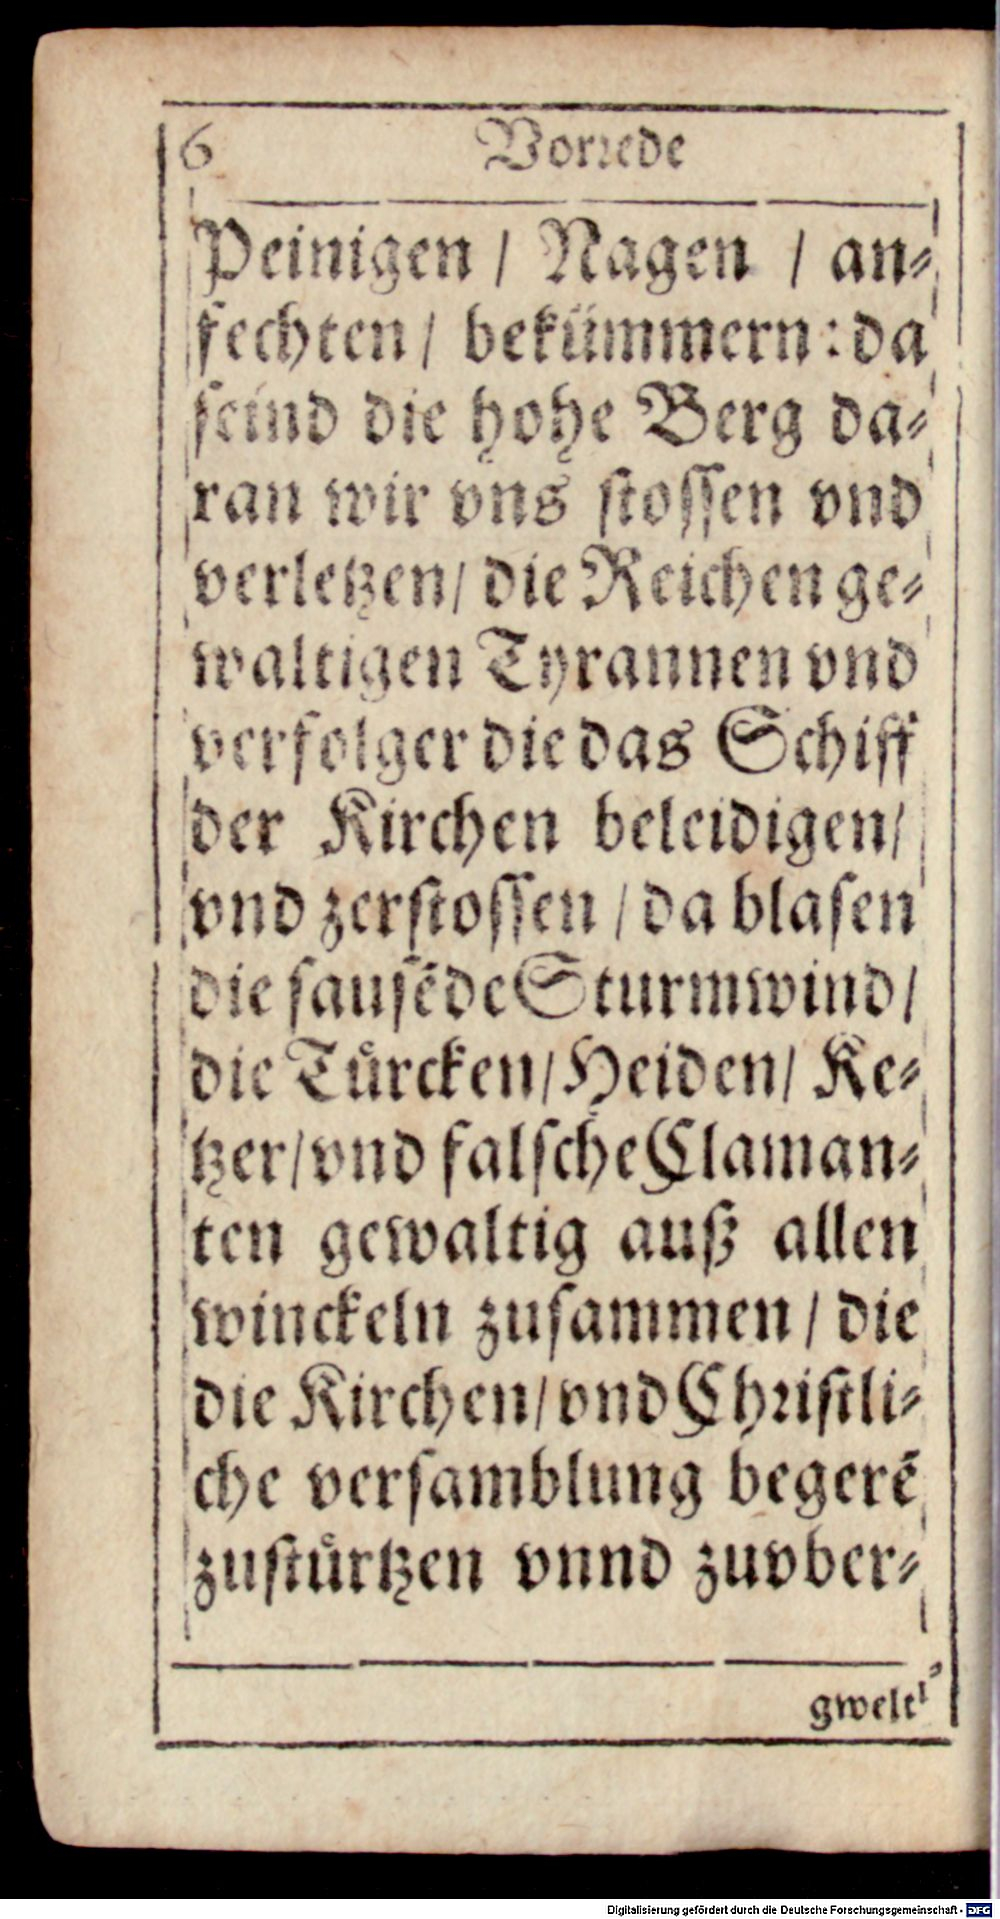 6 Vorrede
Peinigen / Nagen / an⸗
fechten / bekümmern : da
ſeind die hohe Berg da⸗
ran wir vns ſtoſſen vnd
verletzen / die Reichen ge⸗
waltigen Tyrannen vnd
verfolger die das Schiff
der Kirchen beleidigen /
vnd zerſtoſſen / da blaſen
die ſauſēde Sturmwind /
die Tuͤrcken / Heiden / Ke⸗
tzer / vnd falſche Claman⸗
ten gewaltig auß allen
winckeln zuſammen / die
die Kirchen / vnd Chꝛiſtli⸗
che verſamblung begerē
zuſtuͤrtzen vnnd zuvber⸗
gwelti⸗
Digitalisierung gefördert durch die Deutsche Forschungsgemeinschaft - DFG